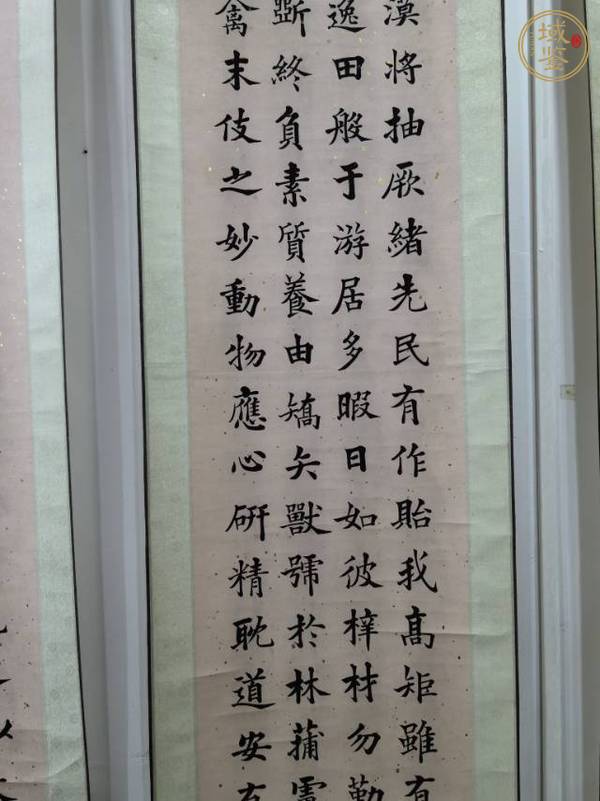 漠將抽厥緒先民有作貽我高矩雖有
逸田般于游居多暇日如彼梓材勿勤
斲終負素質養由矯矢獸號於林蒲
禽末伎之妙動物應心研精耽道安有
域鉴